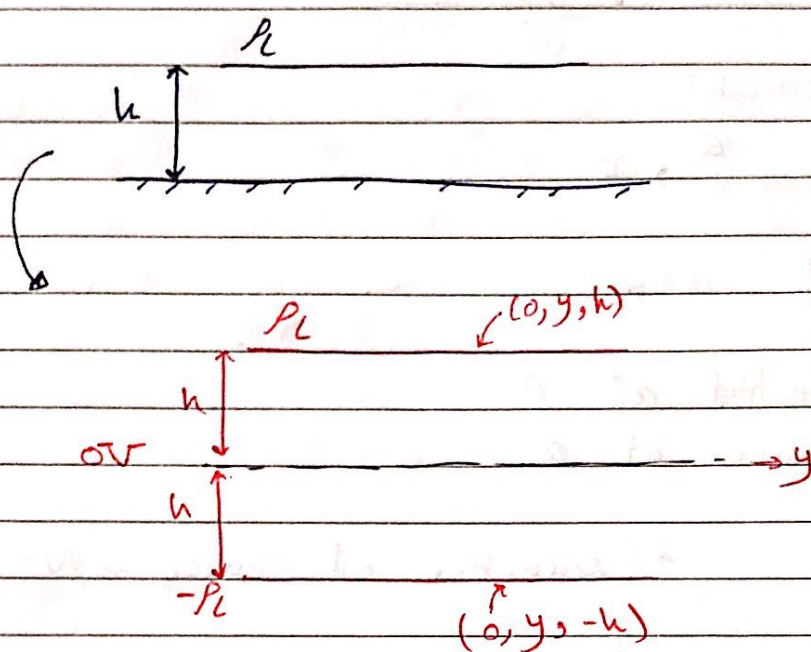 ρL
h
ρL
(0, y, h)
h
0V
y
h
-ρL
(0, y, -h)